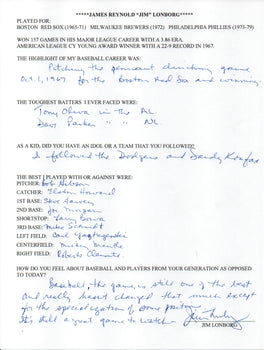 *****JAMES REYNOLD "JIM" LONBORG*****
PLAYED FOR:
BOSTON RED SOX (1965-71) MILWAUKEE BREWERS (1972) PHILADELPHIA PHILLIES (1973-79)
WON 157 GAMES IN HIS MAJOR LEAGUE CAREER WITH A 3.86 ERA.
AMERICAN LEAGUE CY YOUNG AWARD WINNER WITH A 22-9 RECORD IN 1967.
THE HIGHLIGHT OF MY BASEBALL CAREER WAS:
Pitching the pennant clinching game
Oct. 1, 1967 for the Boston Red Sox and winning
THE TOUGHEST BATTERS I EVER FACED WERE:
Tony Oliva in the AL
Dave Parker " " NL
AS A KID, DID YOU HAVE AN IDOL OR A TEAM THAT YOU FOLLOWED?
I followed the Dodgers and Sandy Koufax
THE BEST I PLAYED WITH OR AGAINST WERE:
PITCHER: Bob Gibson
CATCHER: Elston Howard
1ST BASE: Steve Garvey
2ND BASE: Joe Morgan
SHORTSTOP: Larry Bowa
3RD BASE: Mike Schmidt
LEFT FIELD: Carl Yastrzemski
CENTERFIELD: Mickey Mantle
RIGHT FIELD: Roberto Clemente
HOW DO YOU FEEL ABOUT BASEBALL AND PLAYERS FROM YOUR GENERATION AS OPPOSED
TO TODAY?
Baseball, the game, is still one of the best
and really hasn't changed that much except
for the specialization of some positions
It's still a great game to watch
Jim Lonborg
JIM LONBORG